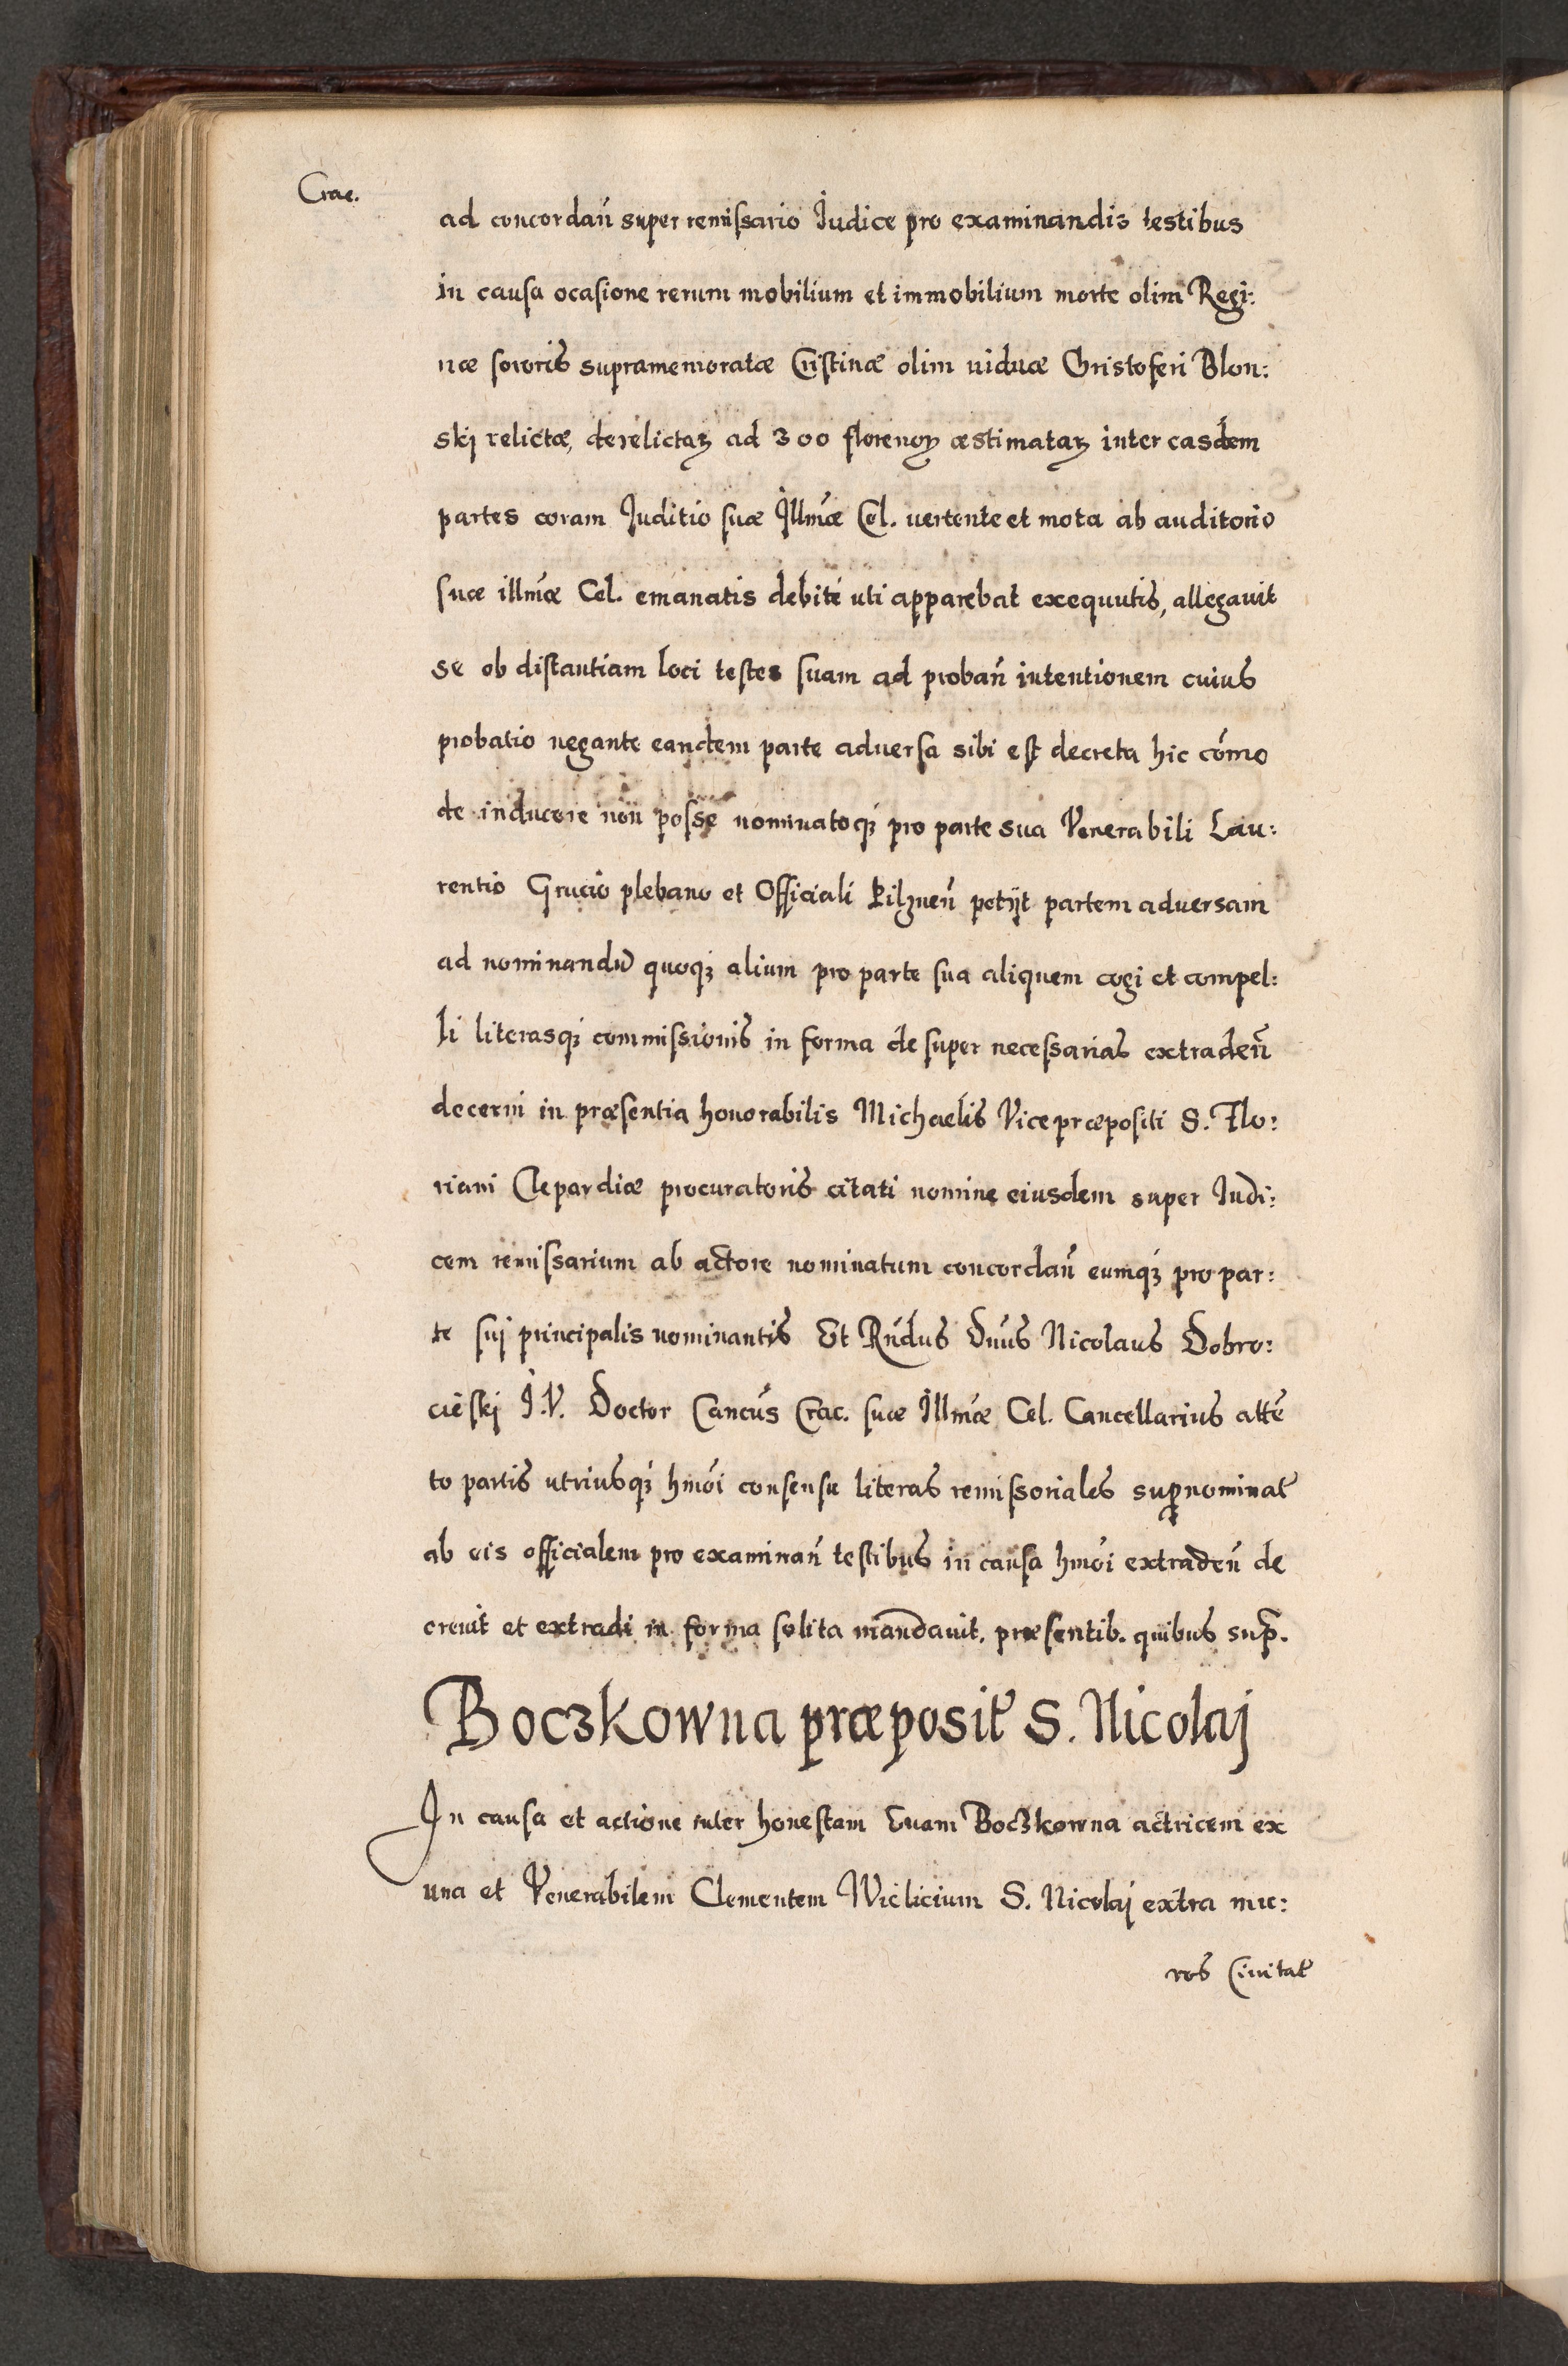 Crac.
ad concordan̄ super remissario Iudice pro examinandis testibus
in causa ocasione rerum mobilium et immobilium morte olim Regi:
næ sororis supramemoratæ Cristinæ olim uiduæ Cristoferi Blon:
skj relictæ, derelictaꝝ ad 300 florenoꝝ æstimataꝝ inter easdem
partes coram Juditio suæ Illm̄æ Cel. uertente et mota ab auditorio
suæ illm̄æ Cel. emanatis debité uti apparebat exequutis, allegauit
se ob distantiam loci testes suam ad proban̄ intentionem cuius
probatio negante eandem parte aduersa sibi est decreta hic cōmo
de inducere non posse nominatoqꝫ pro parte sua Venerabili Lau:
rentio Grucio plebano et Officiali Pilznen̄ petijt partem aduersam
ad nominandū quoqꝫ alium pro parte sua aliquem cogi et compel:
li literasqꝫ commissionis in forma de super necessarias extraden̄
decerni in præsentia honorabilis Michaelis Vicepræpositi S. Flo:
riani Clepardiæ procuratoris citati nomine eiusdem super Iudi:
cem remissarium ab actore nominatum concordan̄ eumqꝫ pro par:
te suj principalis nominantis Et Rn̄dus Dn̄us Nicolaus Dobro:
cieskj J.V. Doctor Cancūs Crac. suæ Illm̄æ Cel. Cancellarius attē
to partis utriusqꝫ hmōi consensu literas remissoriales suꝑnominat̄
ab eis officialem pro examinan̄ testibus in causa hmōi extraden̄ de
creuit et extradi in forma solita mandauit. præsentib. quibus sup̄.
Boczkowna præposit̄ S. Nicolaj
In causa et actione inter honestam Euam Boczkowna actricem ex
una et Venerabilem Clementem Wielicium S. Nicolaj extra mu:
ros Ciuitat̄